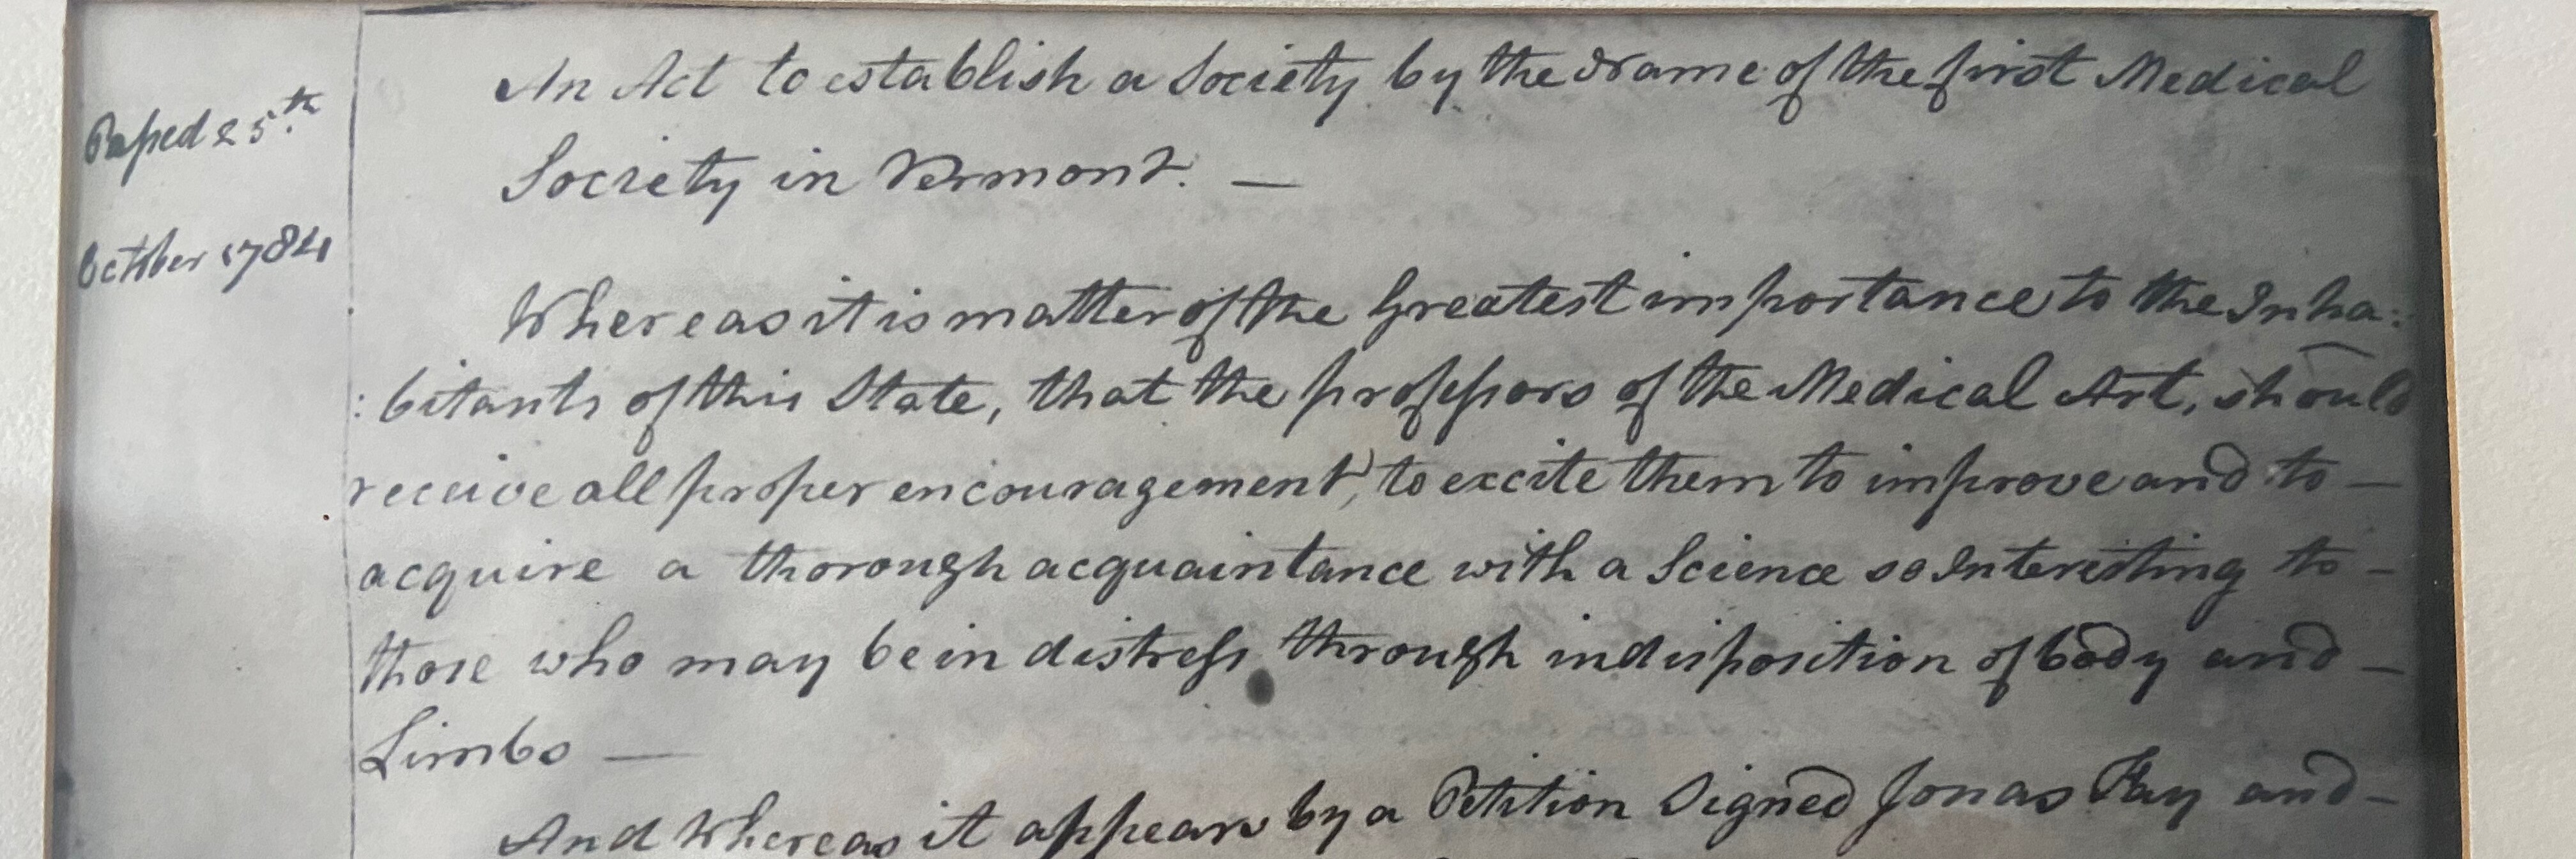 Passed 25.th
October 1784
An Act to establish a Society by the Name of the first Medical
Society in Vermont. —
Whereas it is matter of the Greatest importance to the Inha:
: bitants of this State, that the professors of the Medical Art, should
receive all proper encouragement, to excite them to improve and to —
acquire a thorough acquaintance with a Science so Interesting to —
those who may be in distress through indisposition of body and —
Limbs —
And Whereas it appears by a Petition Signed Jonas Fay and —